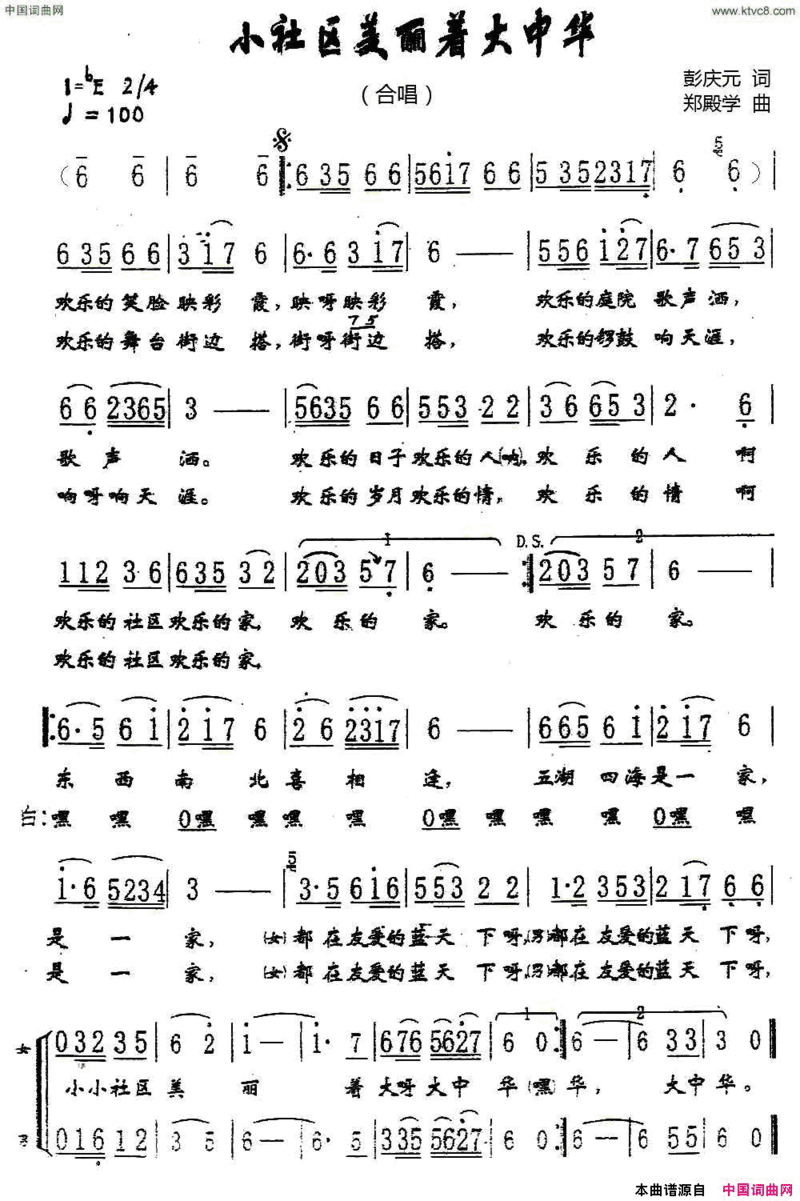 中国词曲网
www.ktvc8.com
小社区美丽着大中华
(合唱)
1=bE 2/4
♩=100
彭庆元 词
郑殿学 曲
(6 6 | 6 6 |: 635 66 | 5617 66 | 535 2317 | 6 6) |
635 66 | 317 6 | 6·6 317 | 6 —— | 556 127 | 6·7 653 |
欢乐的笑脸映彩霞,映呀映彩霞, 欢乐的庭院歌声洒,
欢乐的舞台街边搭,街呀街边搭, 欢乐的锣鼓响天涯,
66 2365 | 3 —— | 5635 66 | 553 22 | 36 653 | 2· 6 |
歌声洒。 欢乐的日子欢乐的人(呐),欢乐的人啊
响呀响天涯。 欢乐的岁月欢乐的情,欢乐的情啊
1 D.S. 2
112 3·6 | 635 32 | 203 57 | 6· —— :| 203 57 | 6 —— |
欢乐的社区欢乐的家,欢乐的家。 欢乐的家。
欢乐的社区欢乐的家,
|: 6·5 61 | 217 6 | 36 2317 | 6 —— | 665 61 | 217 6 |
东西南北喜相逢, 五湖四海是一家,
白:嘿 嘿 0嘿 嘿嘿 嘿 0嘿 嘿 嘿 嘿 0嘿 嘿
1·6 5234 | 3 —— | 3·5 616 | 553 22 | 1·2 353 | 217 66 |
是一家, (女)都在友爱的蓝天下呀,(男)都在友爱的蓝天下呀,
是一家, (女)都在友爱的蓝天下呀,(男)都在友爱的蓝天下呀,
女 032 35 | 6 2 | 1— | 1· 7 | 676 5627 | 6 0 :| 6— | 6 33 | 3 0 ||
小小社区美丽着大呀大中华(嘿)华, 大中华。
016 12 | 3 5 | 6— | 6· 5 | 335 5627 | 6 0 :| 6— | 6 55 | 6 0 ||
本曲谱源自 中国词曲网